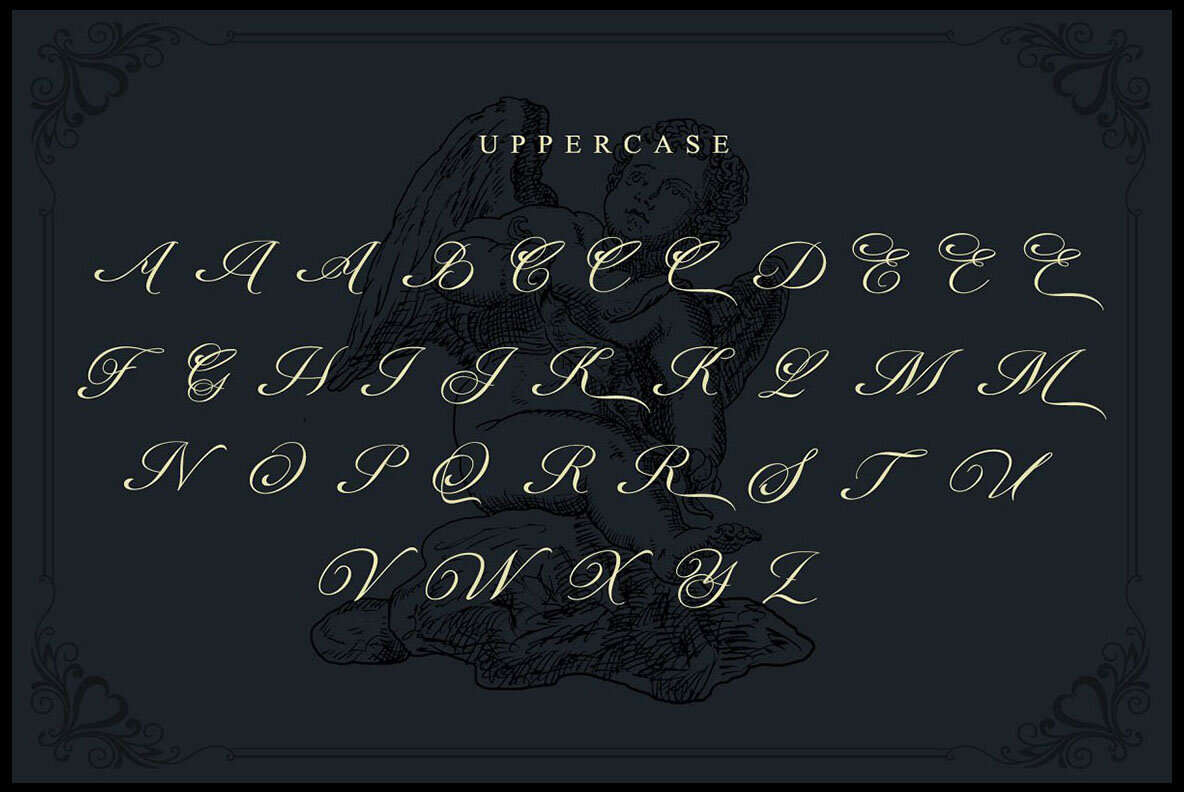 UPPERCASE
A A A B C C C D E E E
F G H I J K K L M M
N O P Q R R S T U
V W X Y Z